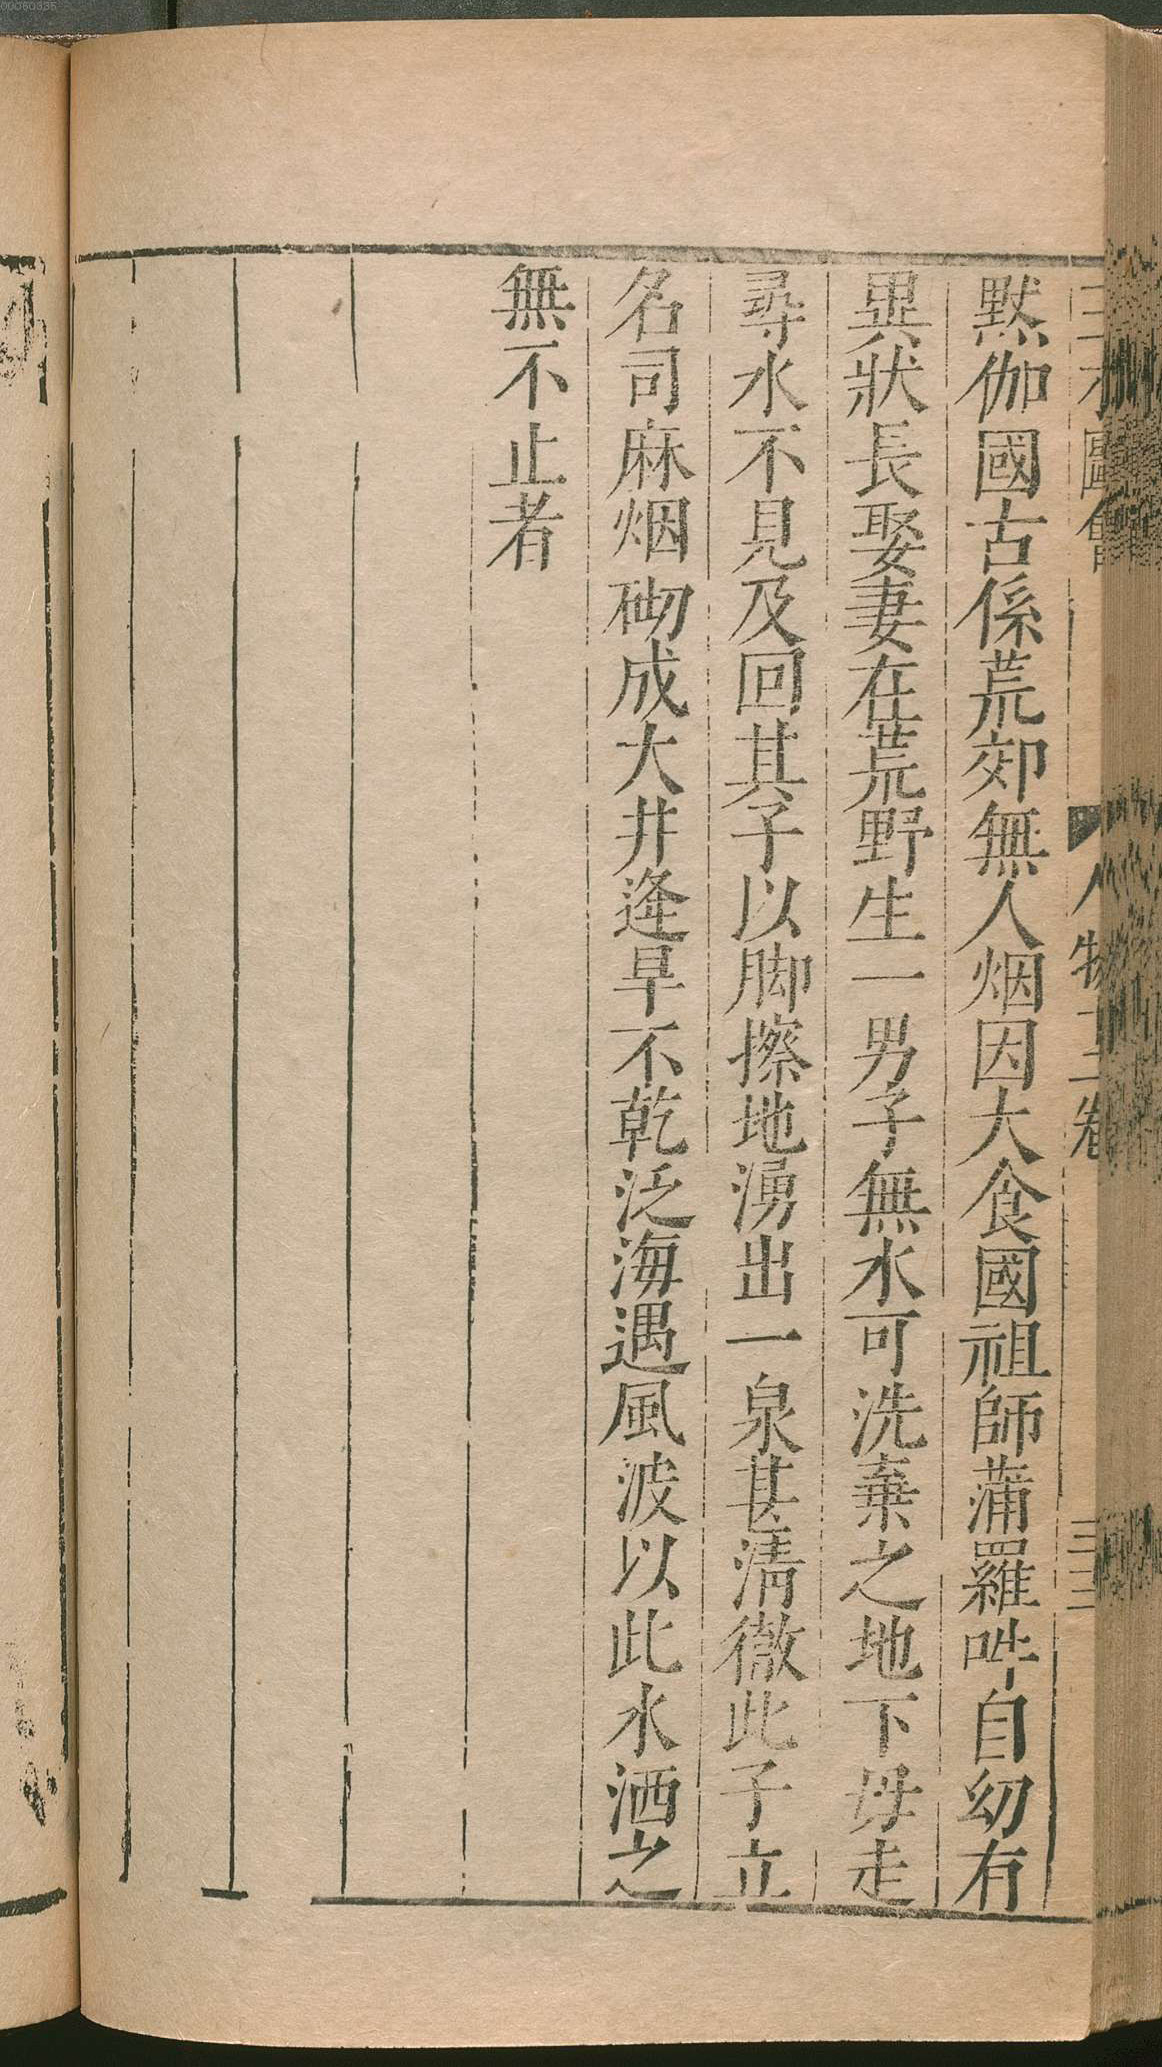 00060335
三才圖會 人物十二卷 三三
默伽國古係荒郊無人烟因大食國祖師蒲羅吽自幼有
異狀長娶妻在荒野生一男子無水可洗棄之地下母走
尋水不見及回其子以脚擦地湧出一泉甚清徹此子立
名司麻烟砌成大井逢旱不乾泛海遇風波以此水洒之
無不止者